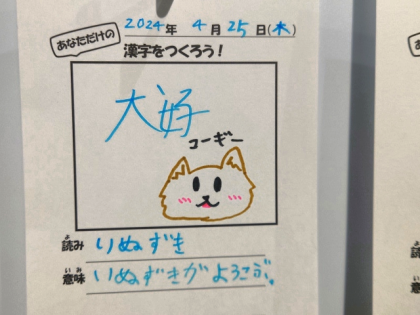 2024年 4月25日(木)
あなただけの
漢字をつくろう!
犬好
コーギー
よ
読み いぬずき
いみ
意味 いぬずきがよろこぶ。